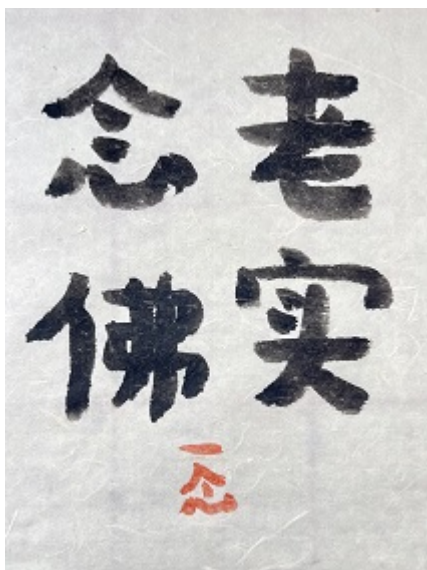 老实
念佛
一念